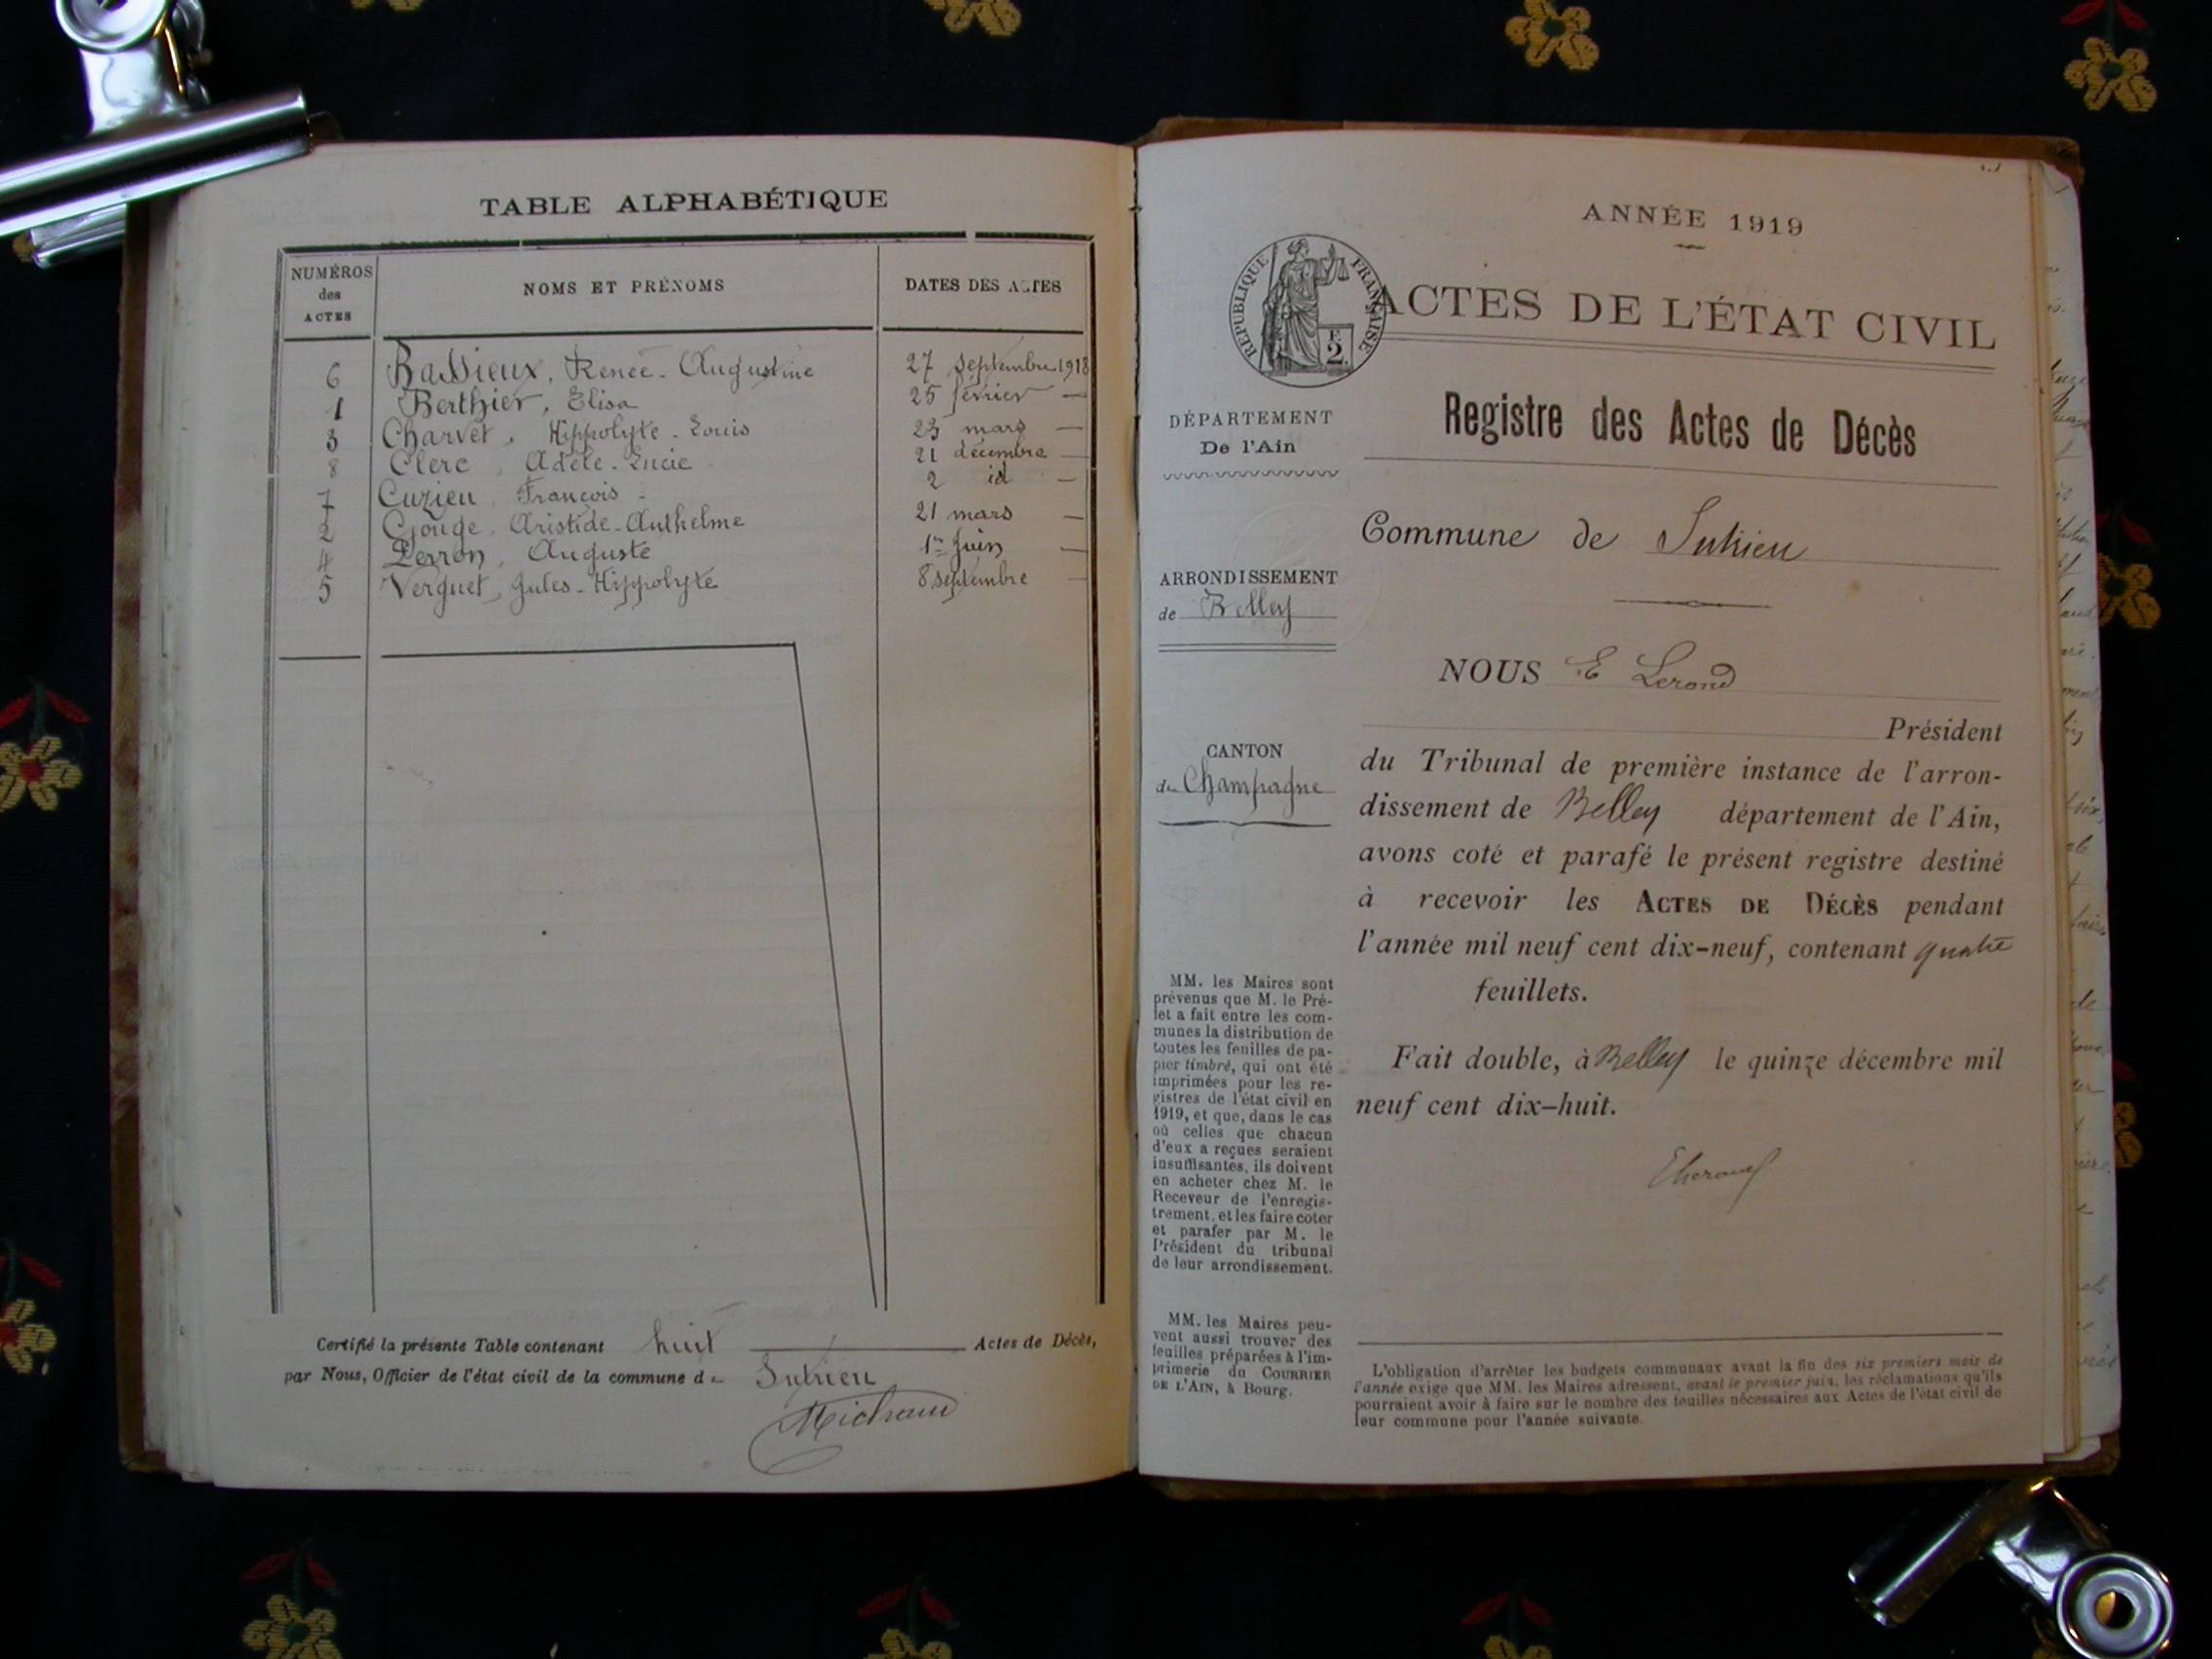 TABLE ALPHABÉTIQUE
NUMÉROS des ACTES
NOMS ET PRÉNOMS
DATES DES ACTES
6 Bassieux, Renée-Augustine 27 septembre 1918
1 Berthier, Elisa 25 février —
3 Charvet, Hippolyte-Louis 23 mars —
8 Clerc, Adèle-Lucie 21 décembre —
7 Cuzieu François 2 id —
2 Gouge, Aristide-Anthelme 21 mars —
4 Perron, Auguste 1er Juin —
5 Verguet, Jules-Hippolyte 8 septembre —
Certifié la présente Table contenant huit Actes de Décès,
par Nous, Officier de l'état civil de la commune de Sutrieu
Michaud
ANNÉE 1919
RÉPUBLIQUE FRANÇAISE
F.
2.
ACTES DE L'ÉTAT CIVIL
DÉPARTEMENT
De l'Ain
Registre des Actes de Décès
Commune de Sutrieu
ARRONDISSEMENT
de Belley
NOUS E Lerond
Président
CANTON
de Champagne
du Tribunal de première instance de l'arron-
dissement de Belley département de l'Ain,
avons coté et parafé le présent registre destiné
à recevoir les ACTES DE DÉCÈS pendant
l'année mil neuf cent dix-neuf, contenant quatre
feuillets.
Fait double, à Belley le quinze décembre mil
neuf cent dix-huit.
MM. les Maires sont
prévenus que M. le Pré-
fet a fait entre les com-
munes la distribution de
toutes les feuilles de pa-
pier timbré, qui ont été
imprimées pour les re-
gistres de l'état civil en
1919, et que, dans le cas
où celles que chacun
d'eux a reçues seraient
insuffisantes, ils doivent
en acheter chez M. le
Receveur de l'enregis-
trement, et les faire coter
et parafer par M. le
Président du tribunal
de leur arrondissement.
MM. les Maires peu-
vent aussi trouver des
feuilles préparées à l'im-
primerie du COURRIER
DE L'AIN, à Bourg.
L'obligation d'arrêter les budgets communaux avant la fin des six premiers mois de
l'année exige que MM. les Maires adressent, avant le premier juin, les réclamations qu'ils
pourraient avoir à faire sur le nombre des feuilles nécessaires aux Actes de l'état civil de
leur commune pour l'année suivante.